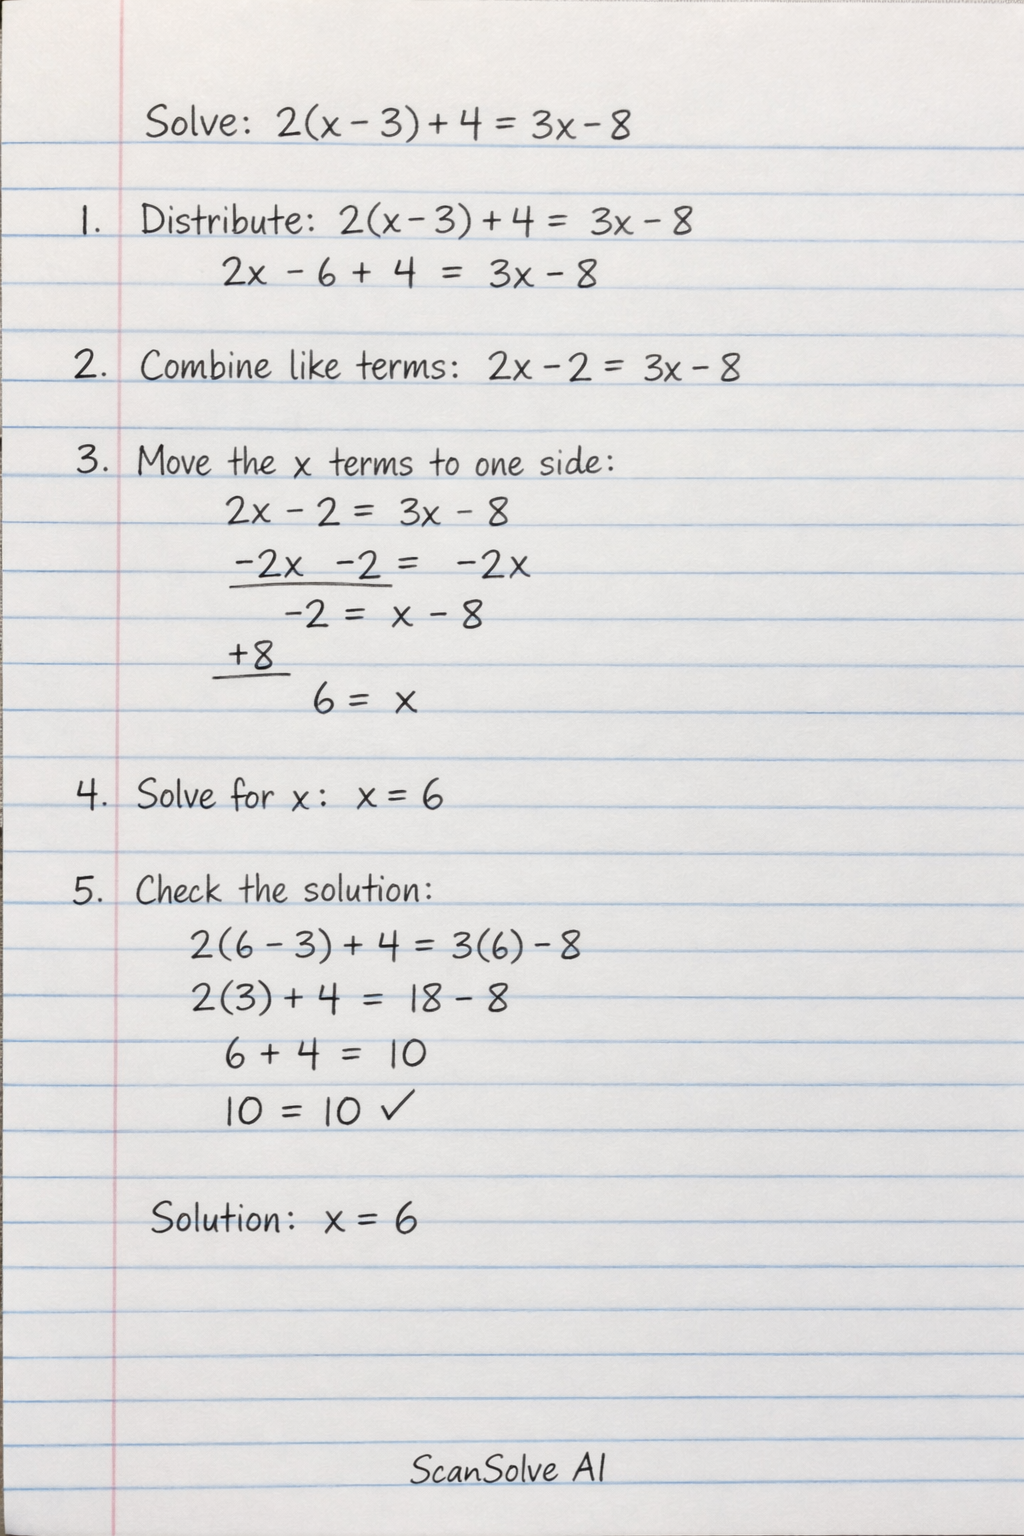 Solve: 2(x - 3) + 4 = 3x - 8
1. Distribute: 2(x - 3) + 4 = 3x - 8
2x - 6 + 4 = 3x - 8
2. Combine like terms: 2x - 2 = 3x - 8
3. Move the x terms to one side:
2x - 2 = 3x - 8
-2x -2 = -2x
-2 = x - 8
+8
6 = x
4. Solve for x: x = 6
5. Check the solution:
2(6 - 3) + 4 = 3(6) - 8
2(3) + 4 = 18 - 8
6 + 4 = 10
10 = 10 ✓
Solution: x = 6
ScanSolve AI